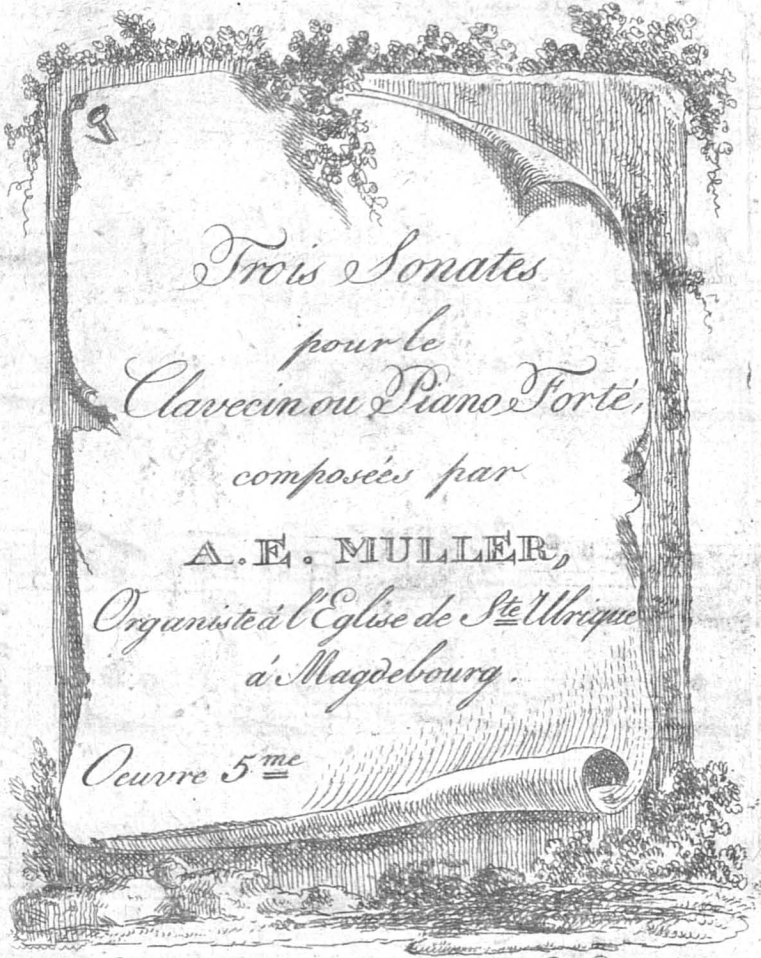 Trois Sonates
pour le
Clavecin ou Piano Forté,
composées par
A. E. MULLER,
Organiste á l'Eglise de Ste Ulrique
á Magdebourg.
Oeuvre 5me